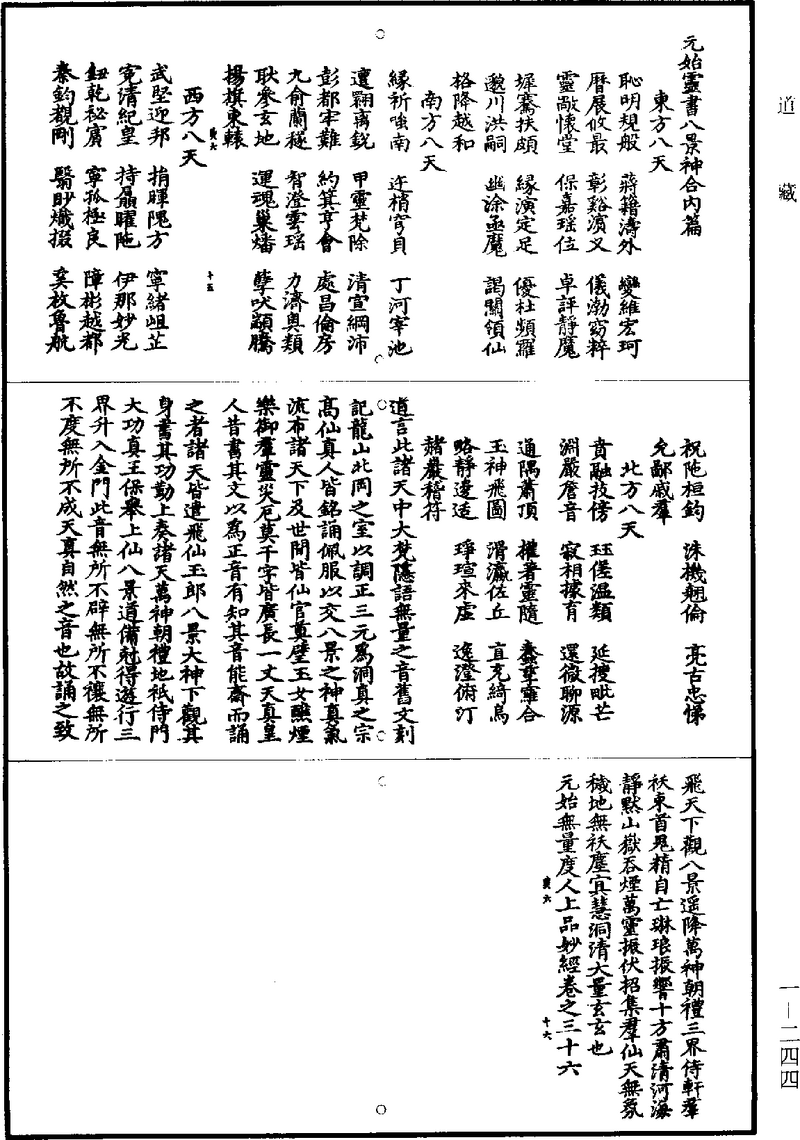 道藏
元始靈書八景神合內篇
東方八天
恥明規般 蔣籍濤外 變維宏珂
曆展攸最 彰谿濱义 儀渤窈粹
靈敵懷堂 保嘉瑶位 卓評靜魔
墀騫扶頗 緣演定足 優杜頻羅
邈川洪嗣 幽涂亟魔 謁關領仙
格降越和
南方八天
緣祈嗤南 迕梢穹貝 丁河宰池
邅翾离銳 甲靈梵除 清宣綱沛
彭都牢難 約箕亨會 處昌倫房
九俞蘭穟 智澄雲瑶 力濟奥類
耿參玄地 運魂巢燔 孽吠顓騰
揚旗東轅
西方八天
武堅迎邦 指暉隗方 寧緒岨芷
寃清紀皇 持聶曜陁 伊那妙充
鈕乾祕賔 寧孤極良 障彬越都
秦鈞觀剛 翳眇熾掇 奚枚魯航
十五
祝陁桓鈞 洙機翹倫 亮古忠悌
允鄙戚羣
北方八天
賁融技傍 珏傞溫類 延搜毗芒
淵嚴詹音 寂相據育 還微聊源
通隅蕭頂 權著靈隨 蠢孽韋合
玉神飛圖 渭瀛佐丘 直充綺鳥
略靜邊适 琤瑄來虛 逸澄俯汀
赭嚴稽符
道言此諸天中大梵隱語無量之音舊文刻
記龍山北岡之室以調正三元爲洞真之宗
高仙真人皆銘誦佩服以交八景之神真氣
流布諸天下及世間皆仙官奠璧玉女醮煙
樂御羣靈災厄莫干字皆廣長一丈天真皇
人昔書其文以爲正音有知其音能齋而誦
之者諸天皆遣飛仙玉郎八景大神下觀其
身書其功勤上奏諸天萬神朝禮地祇侍門
大功真王保舉上仙八景道備尅得遊行三
界升入金門此音無所不辟無所不禳無所
不度無所不成天真自然之音也故誦之致
飛天下觀八景遥降萬神朝禮三界侍軒羣
祅束首鬼精自亡琳琅振響十方肅清河海
靜默山嶽吞煙萬靈振伏招集羣仙天無氛
穢地無祅塵冥慧洞清大量玄玄也
元始無量度人上品妙經卷之三十六
十六
一—二四四